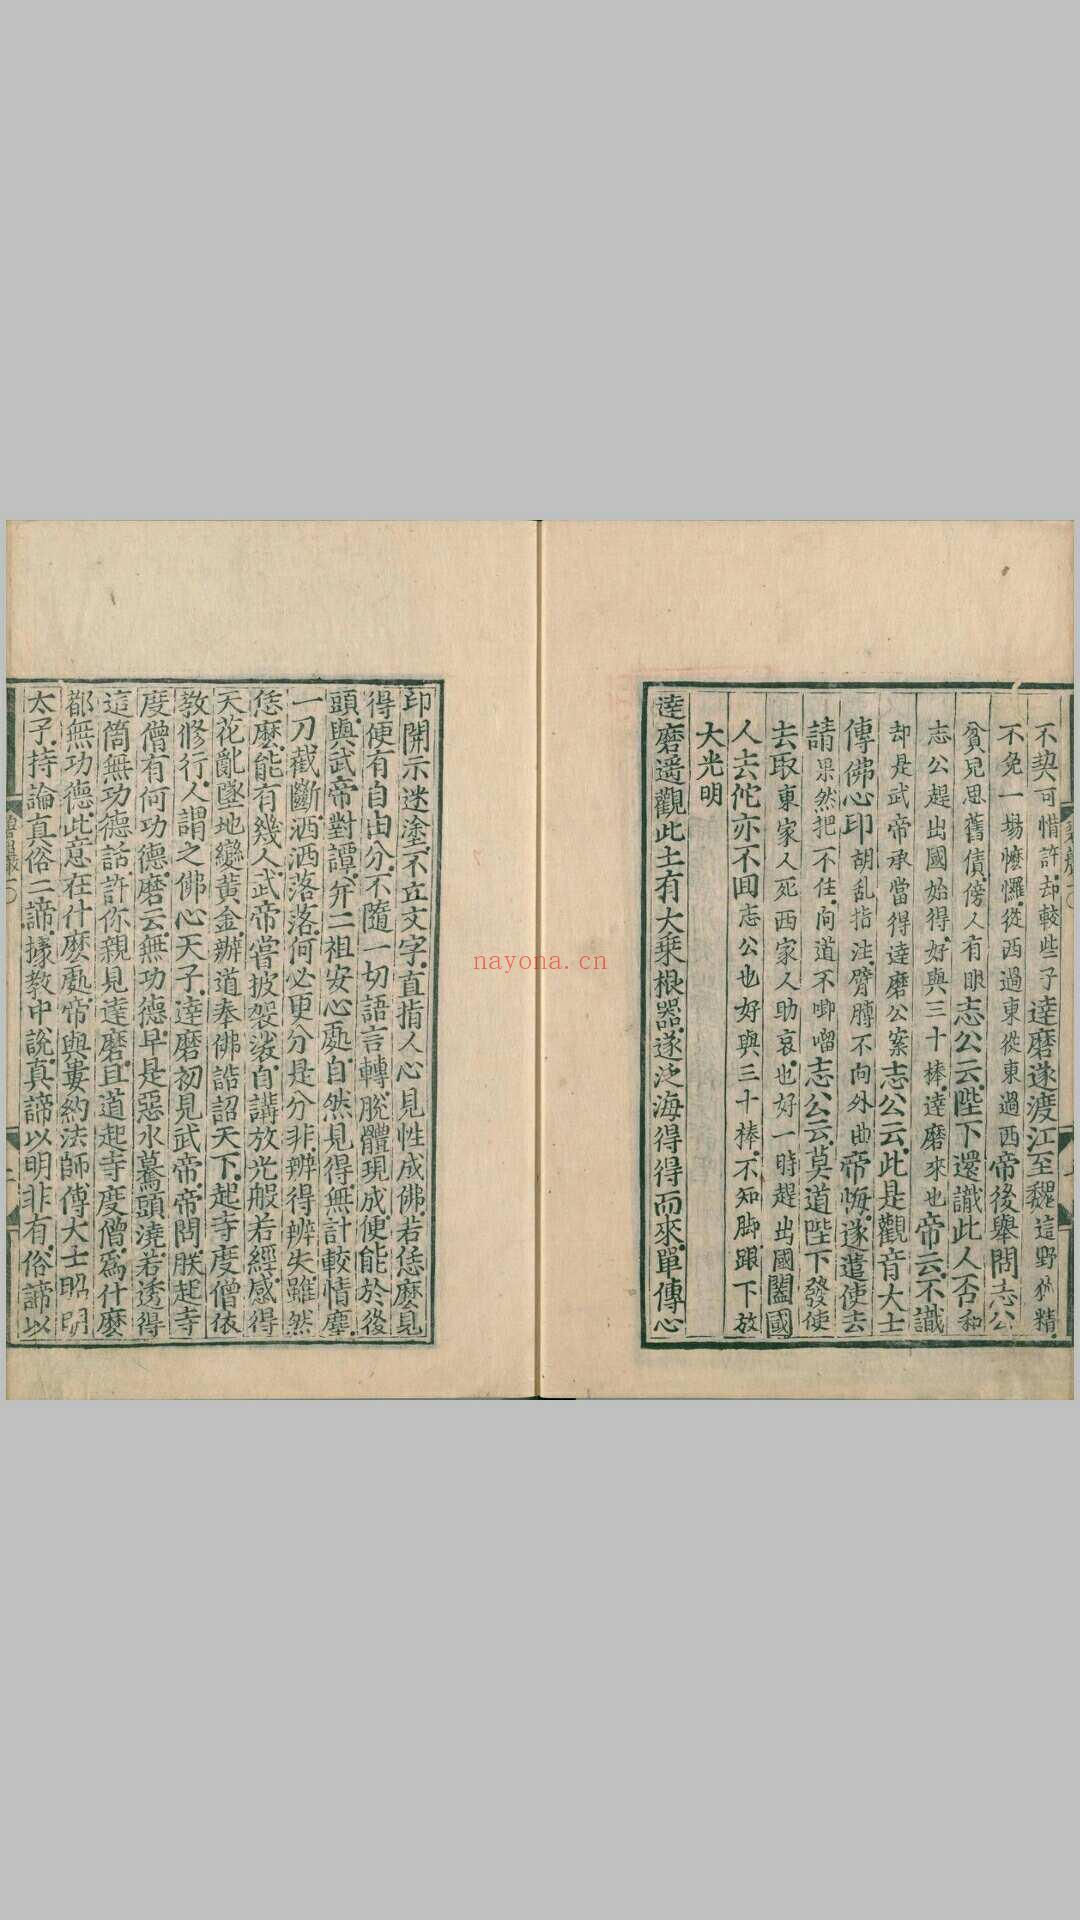 不契可惜許却較些子達磨遂渡江至魏這野狐精
不免一場懡㦬從西過東從東過西帝後舉問志公
貧兒思舊債傍人有眼志公云陛下還識此人否和
志公趕出國始得好與三十棒達磨來也帝云不識
却是武帝承當得達磨公案志公云此是觀音大士
傳佛心印胡亂指注臂膊不向外曲帝悔遂遣使去
請果然把不住向道不唧𠺕志公云莫道陛下發使
去取東家人死西家人助哀也好一時趕出國闔國
人去佗亦不回志公也好與三十棒不知脚跟下放
大光明
達磨遥觀此土有大乗根器遂泛海得得而來單傳心
印開示迷塗不立文字直指人心見性成佛若恁麽見
得便有自由分不隨一切語言轉脱體現成便能於後
頭與武帝對譚并二祖安心處自然見得無計較情塵
一刀截斷洒洒落落何必更分是分非辨得辨失雖然
恁麽能有幾人武帝嘗披袈裟自講放光般若經感得
天花亂墜地變黄金辦道奉佛誥詔天下起寺度僧依
教修行人謂之佛心天子達磨初見武帝帝問朕起寺
度僧有何功德磨云無功德早是惡水驀頭澆若透得
這箇無功德話許你親見達磨且道起寺度僧爲什麽
都無功德此意在什麽處帝與婁約法師傅大士昭明
太子持論真俗二諦據教中說真諦以明非有俗諦以
nayona.cn